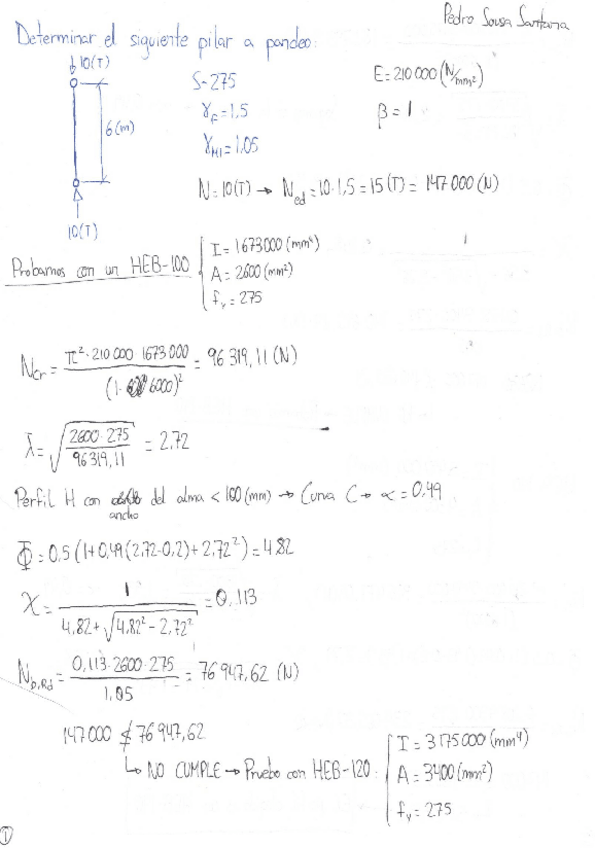 Pedro Sousa Santana
Determinar el siguiente pilar a pandeo:
10(T)
6(m)
10(T)
S-275
γF=1,5
γM1=1,05
E=210000(N/mm²)
β=1
N=10(T) → Ned=10·1,5=15(T)=147000(N)
Probamos con un HEB-100
I=1673000(mm⁴)
A=2600(mm²)
fy=275
Ncr= π²·210000·1673000 / (1·6000)² = 96319,11(N)
λ̄=√(2600·275 / 96319,11) = 2,72
Perfil H con ancho del alma < 100(mm) → Curva C → α=0,49
Φ=0,5(1+0,49(2,72-0,2)+2,72²)=4,82
χ= 1 / (4,82+√(4,82²-2,72²)) = 0,113
Nb,Rd= 0,113·2600·275 / 1,05 = 76947,62(N)
147000 ≰ 76947,62
↳ NO CUMPLE → Pruebo con HEB-120:
I=3175000(mm⁴)
A=3400(mm²)
fy=275
1